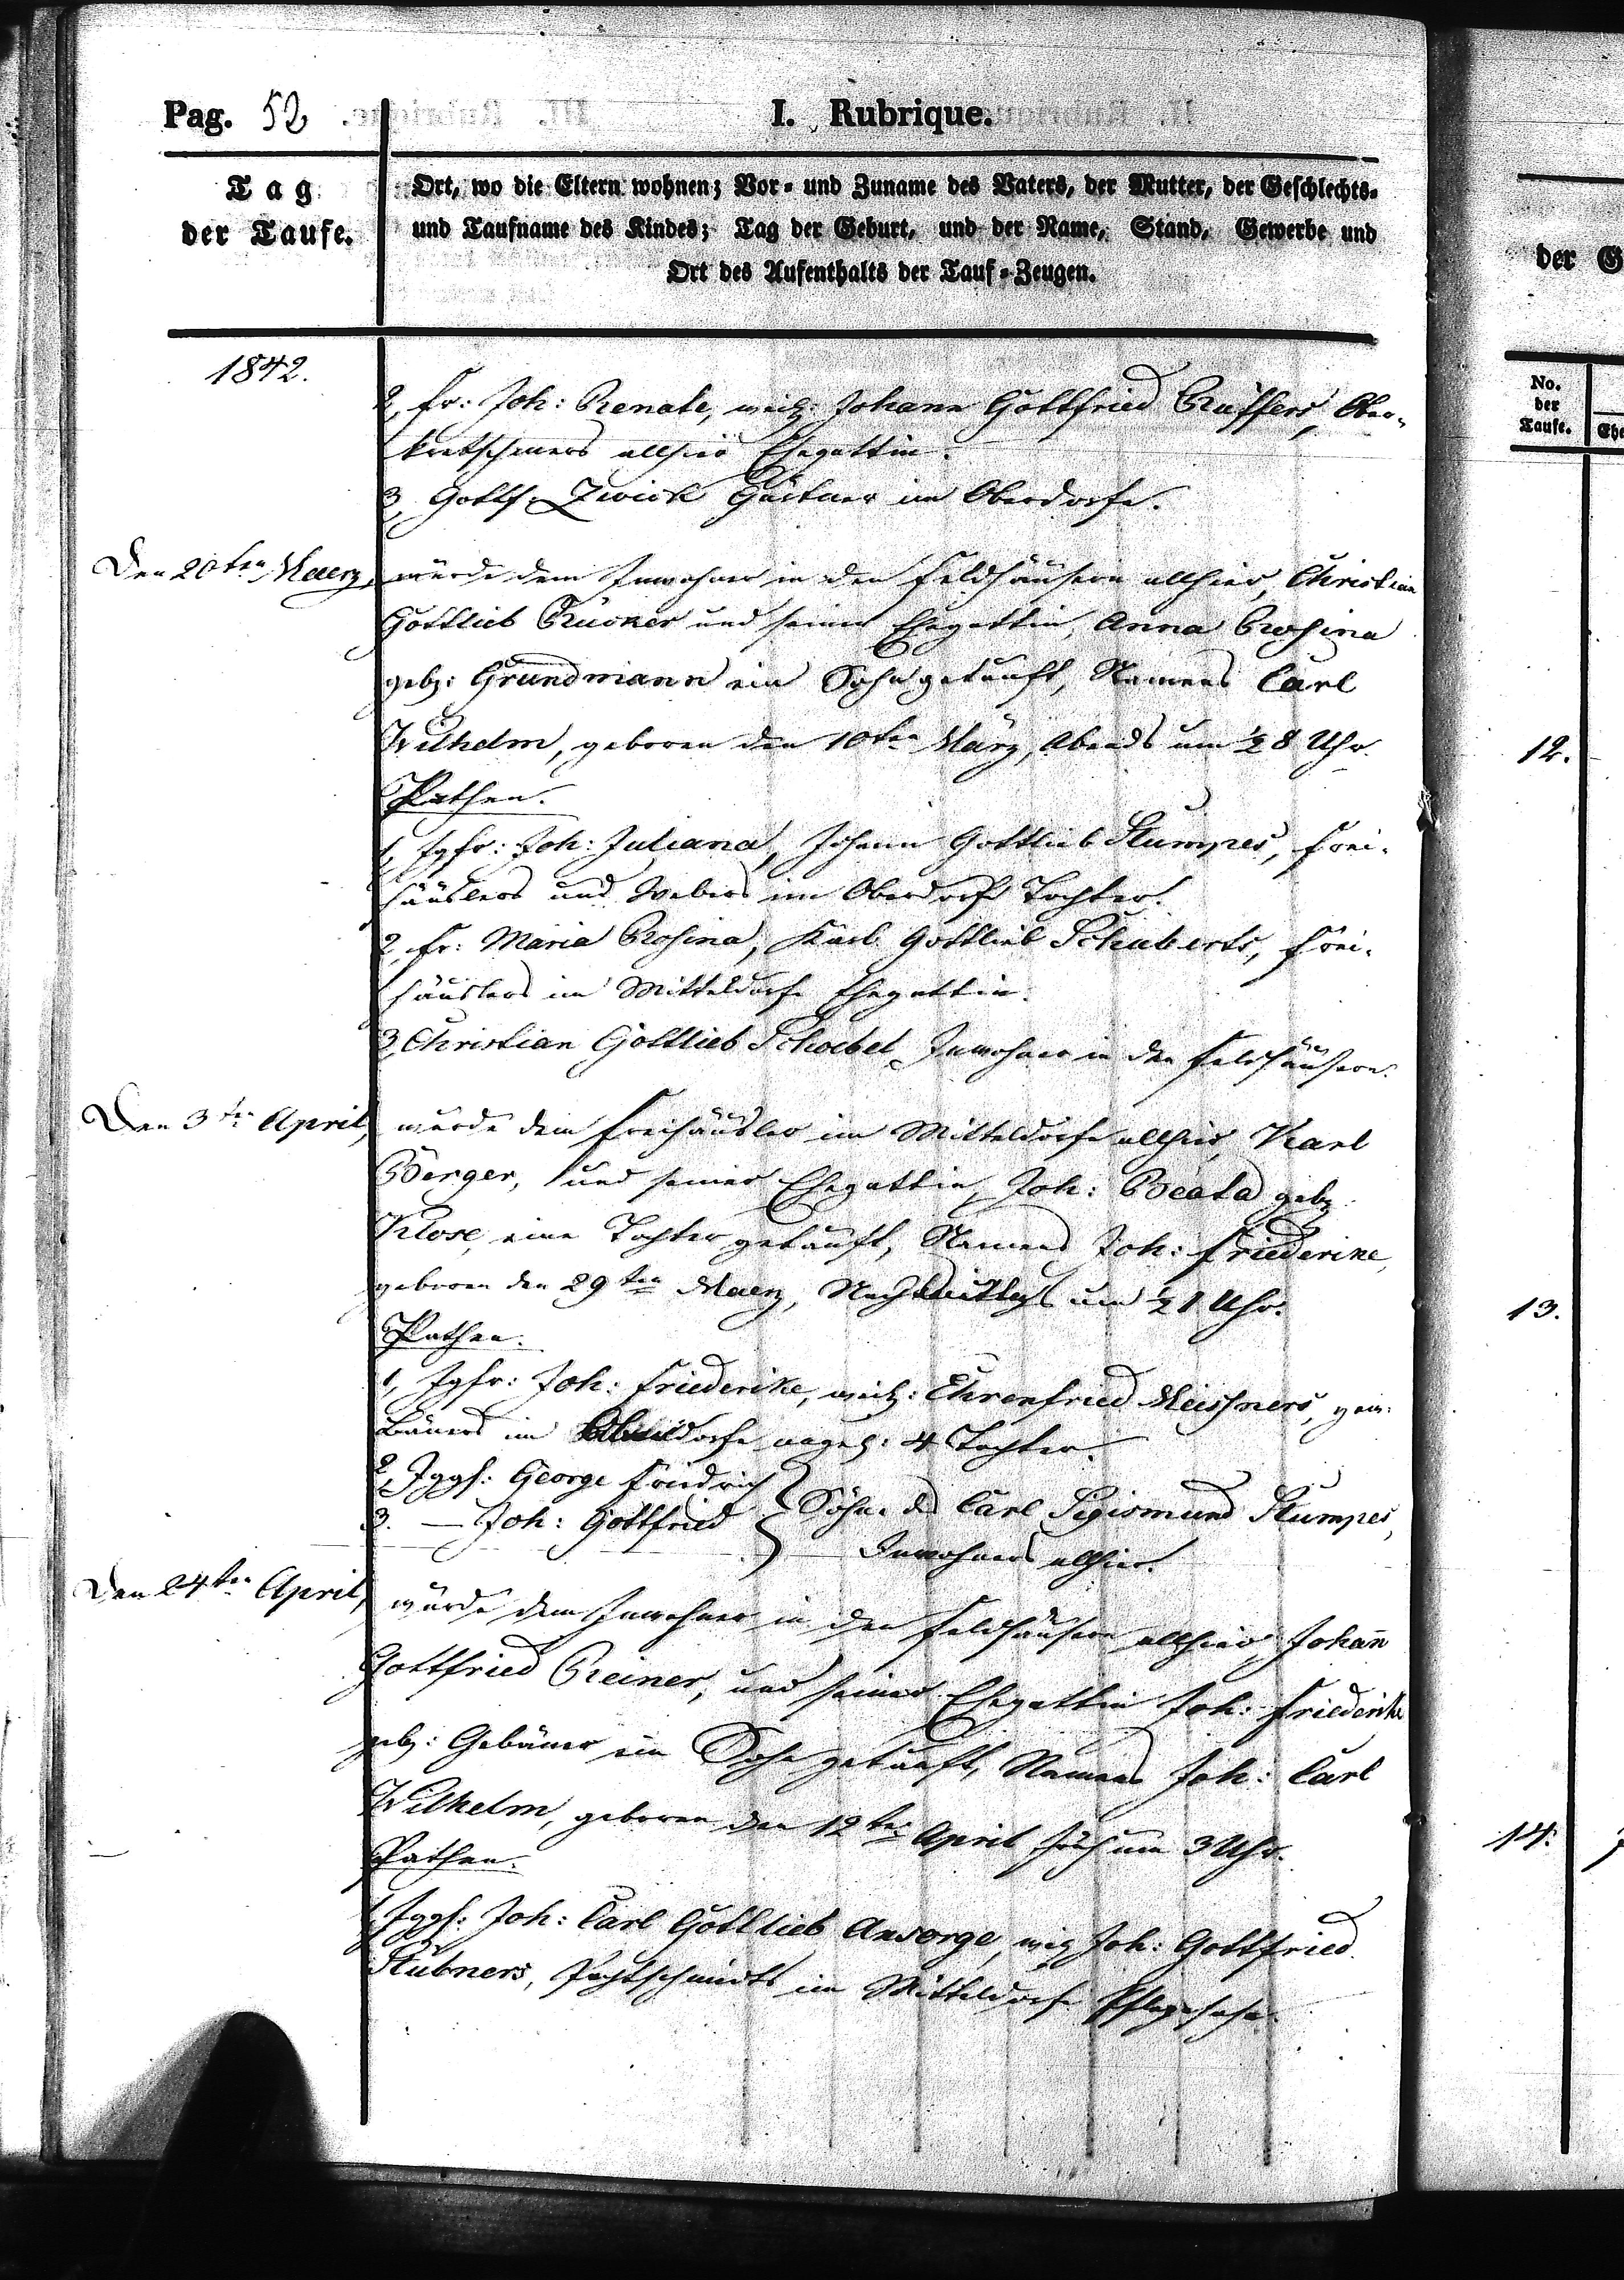 Pag. 52
I. Rubrique.
Tag
der Taufe.
Ort, wo die Eltern wohnen; Vor- und Zuname des Vaters, der Mutter, der Geschlechts-
und Taufname des Kindes; Tag der Geburt, und der Name, Stand, Gewerbe und
Ort des Aufenthalts der Tauf-Zeugen.
1842.
2, Fr: Joh: Renate, Johann Gottfried Rüffers, Ober-
kretschmers allhier Ehegattin.
3, Gottf. Zwick Gärtner im Oberdorfe.
Den 20ten Maerz, wurde dem Inwohner in den Feldhäusern allhier, Christian
Gottlieb Rücker und seiner Ehegattin, Anna Rosina
geb: Grundmann ein Sohn getauft, Namens Carl
Wilhelm, geboren den 10ten März, Abends um ½ 8 Uhr.
Pathen.
1, Jgfr: Joh: Juliana, Johann Gottlieb Stumpes, Frei-
häuslers und Webers im Oberdorf Tochter.
2, Fr: Maria Rosina, Karl Gottlieb Schuberts, Frei-
häuslers im Mitteldorfe Ehegattin.
3, Christian Gottlieb Schoebel Inwohner in den Feldhäusern.
Den 3ten April, wurde dem Freihäusler im Mitteldorfe allhier, Karl
Berger, und seiner Ehegattin, Joh: Beata geb
Klose, eine Tochter getauft, Namens Joh: Friederike,
geboren den 29ten Maerz, Nachmittags um ½ 1 Uhr.
Pathen.
1, Jgfr: Joh: Friederike, Ehrenfried Meissners, gew:
Bauers im 4 Tochter.
2, Jggs: George Friedrich
3. — Joh: Gottfried } Söhne des Carl Sigismund Stumpes,
Inwohners allhier.
Den 24ten April, wurde dem Inwohner in den Feldhäusern allhier, Johann
Gottfried Reiner, und seiner Ehegattin Joh: Friederike
geb: Gebauer ein Sohn getauft, Namens Joh: Carl
Wilhelm, geboren den 12ten April früh um 3 Uhr.
Pathen.
1, Jggs: Joh: Carl Gottlieb Ansorge, Joh: Gottfried
Stübners, Pachtschmidts im Mitteldorfe Pflegesohn.
der G
No.
der
Taufe.
Ehe
12.
13.
14.